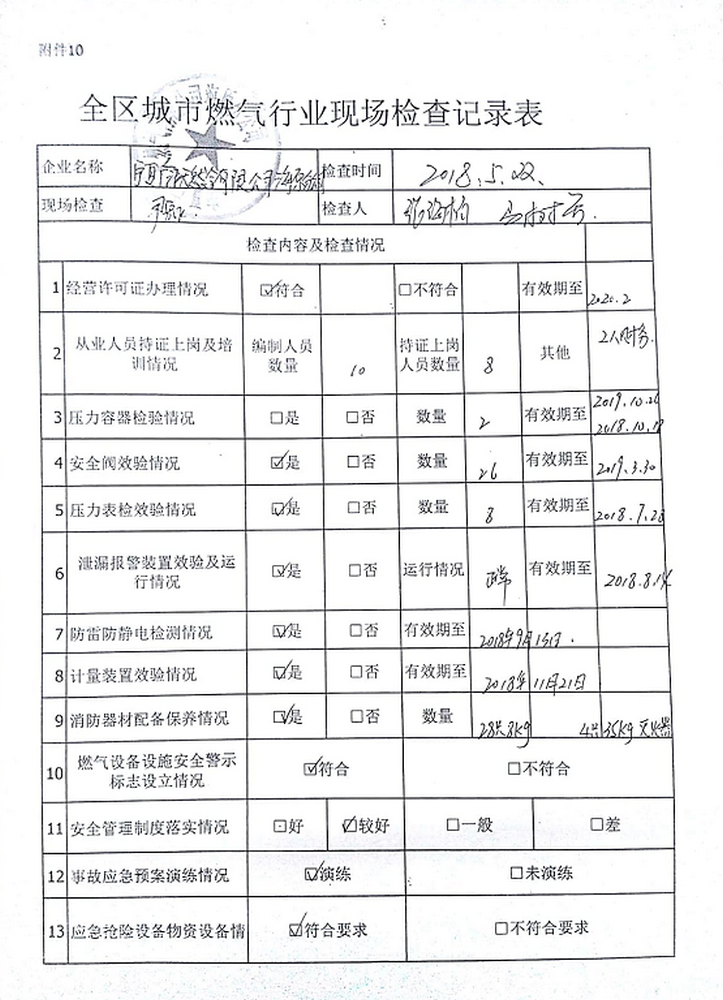 附件10
全区城市燃气行业现场检查记录表
企业名称 检查时间 2018.5.22.
现场检查 检查人
检查内容及检查情况
1 经营许可证办理情况 ☑符合 □不符合 有效期至 2020.2
2 从业人员持证上岗及培训情况 编制人员数量 10 持证上岗人员数量 8 其他 2人财务.
3 压力容器检验情况 □是 □否 数量 2 有效期至 2019.10.26 2018.10.18
4 安全阀效验情况 ☑是 □否 数量 26 有效期至 2019.3.30
5 压力表检效验情况 ☑是 □否 数量 8 有效期至 2018.7.28
6 泄漏报警装置效验及运行情况 ☑是 □否 运行情况 正常 有效期至 2018.8.14
7 防雷防静电检测情况 ☑是 □否 有效期至 2018年9月15日.
8 计量装置效验情况 ☑是 □否 有效期至 2018年11月21日
9 消防器材配备保养情况 ☑是 □否 数量 28具8kg 4具35kg灭火器
10 燃气设备设施安全警示标志设立情况 ☑符合 □不符合
11 安全管理制度落实情况 □好 ☑较好 □一般 □差
12 事故应急预案演练情况 ☑演练 □未演练
13 应急抢险设备物资设备情 ☑符合要求 □不符合要求